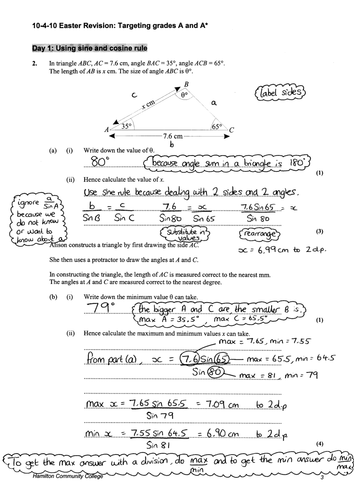 10-4-10 Easter Revision: Targeting grades A and A*
Day 1: Using sine and cosine rule
2. In triangle ABC, AC = 7.6 cm, angle BAC = 35°, angle ACB = 65°.
The length of AB is x cm. The size of angle ABC is θ°.
label sides
B
θ°
c
a
x cm
A
35°
65°
C
7.6 cm
b
(a) (i) Write down the value of θ.
80°
because angle sum in a triangle is 180°
(1)
(ii) Hence calculate the value of x.
Use sine rule because dealing with 2 sides and 2 angles.
ignore a/SinA
because we
do not know
or want to
know about a
b/SinB = c/SinC
7.6/Sin80 = x/Sin65
7.6Sin65/Sin80 = x
substitute in values
rearrange
(3)
x = 6.99cm to 2dp.
Alison constructs a triangle by first drawing the side AC.
She then uses a protractor to draw the angles at A and C.
In constructing the triangle, the length of AC is measured correct to the nearest mm.
The angles at A and C are measured correct to the nearest degree.
(b) (i) Write down the minimum value θ can take.
79°
the bigger A and C are, the smaller B is.
max A = 35.5° max C = 65.5°
(1)
(ii) Hence calculate the maximum and minimum values x can take.
max = 7.65, min = 7.55
from part (a), x = 7.6Sin65/Sin80
max = 65.5, min = 64.5
max = 81, min = 79
max x = 7.65 Sin 65.5/Sin 79 = 7.09 cm to 2dp
min x = 7.55 Sin 64.5/Sin 81 = 6.90 cm to 2dp
(4)
To get the max answer with a division, do max/min and to get the min answer do min/max
Hamilton Community College
3